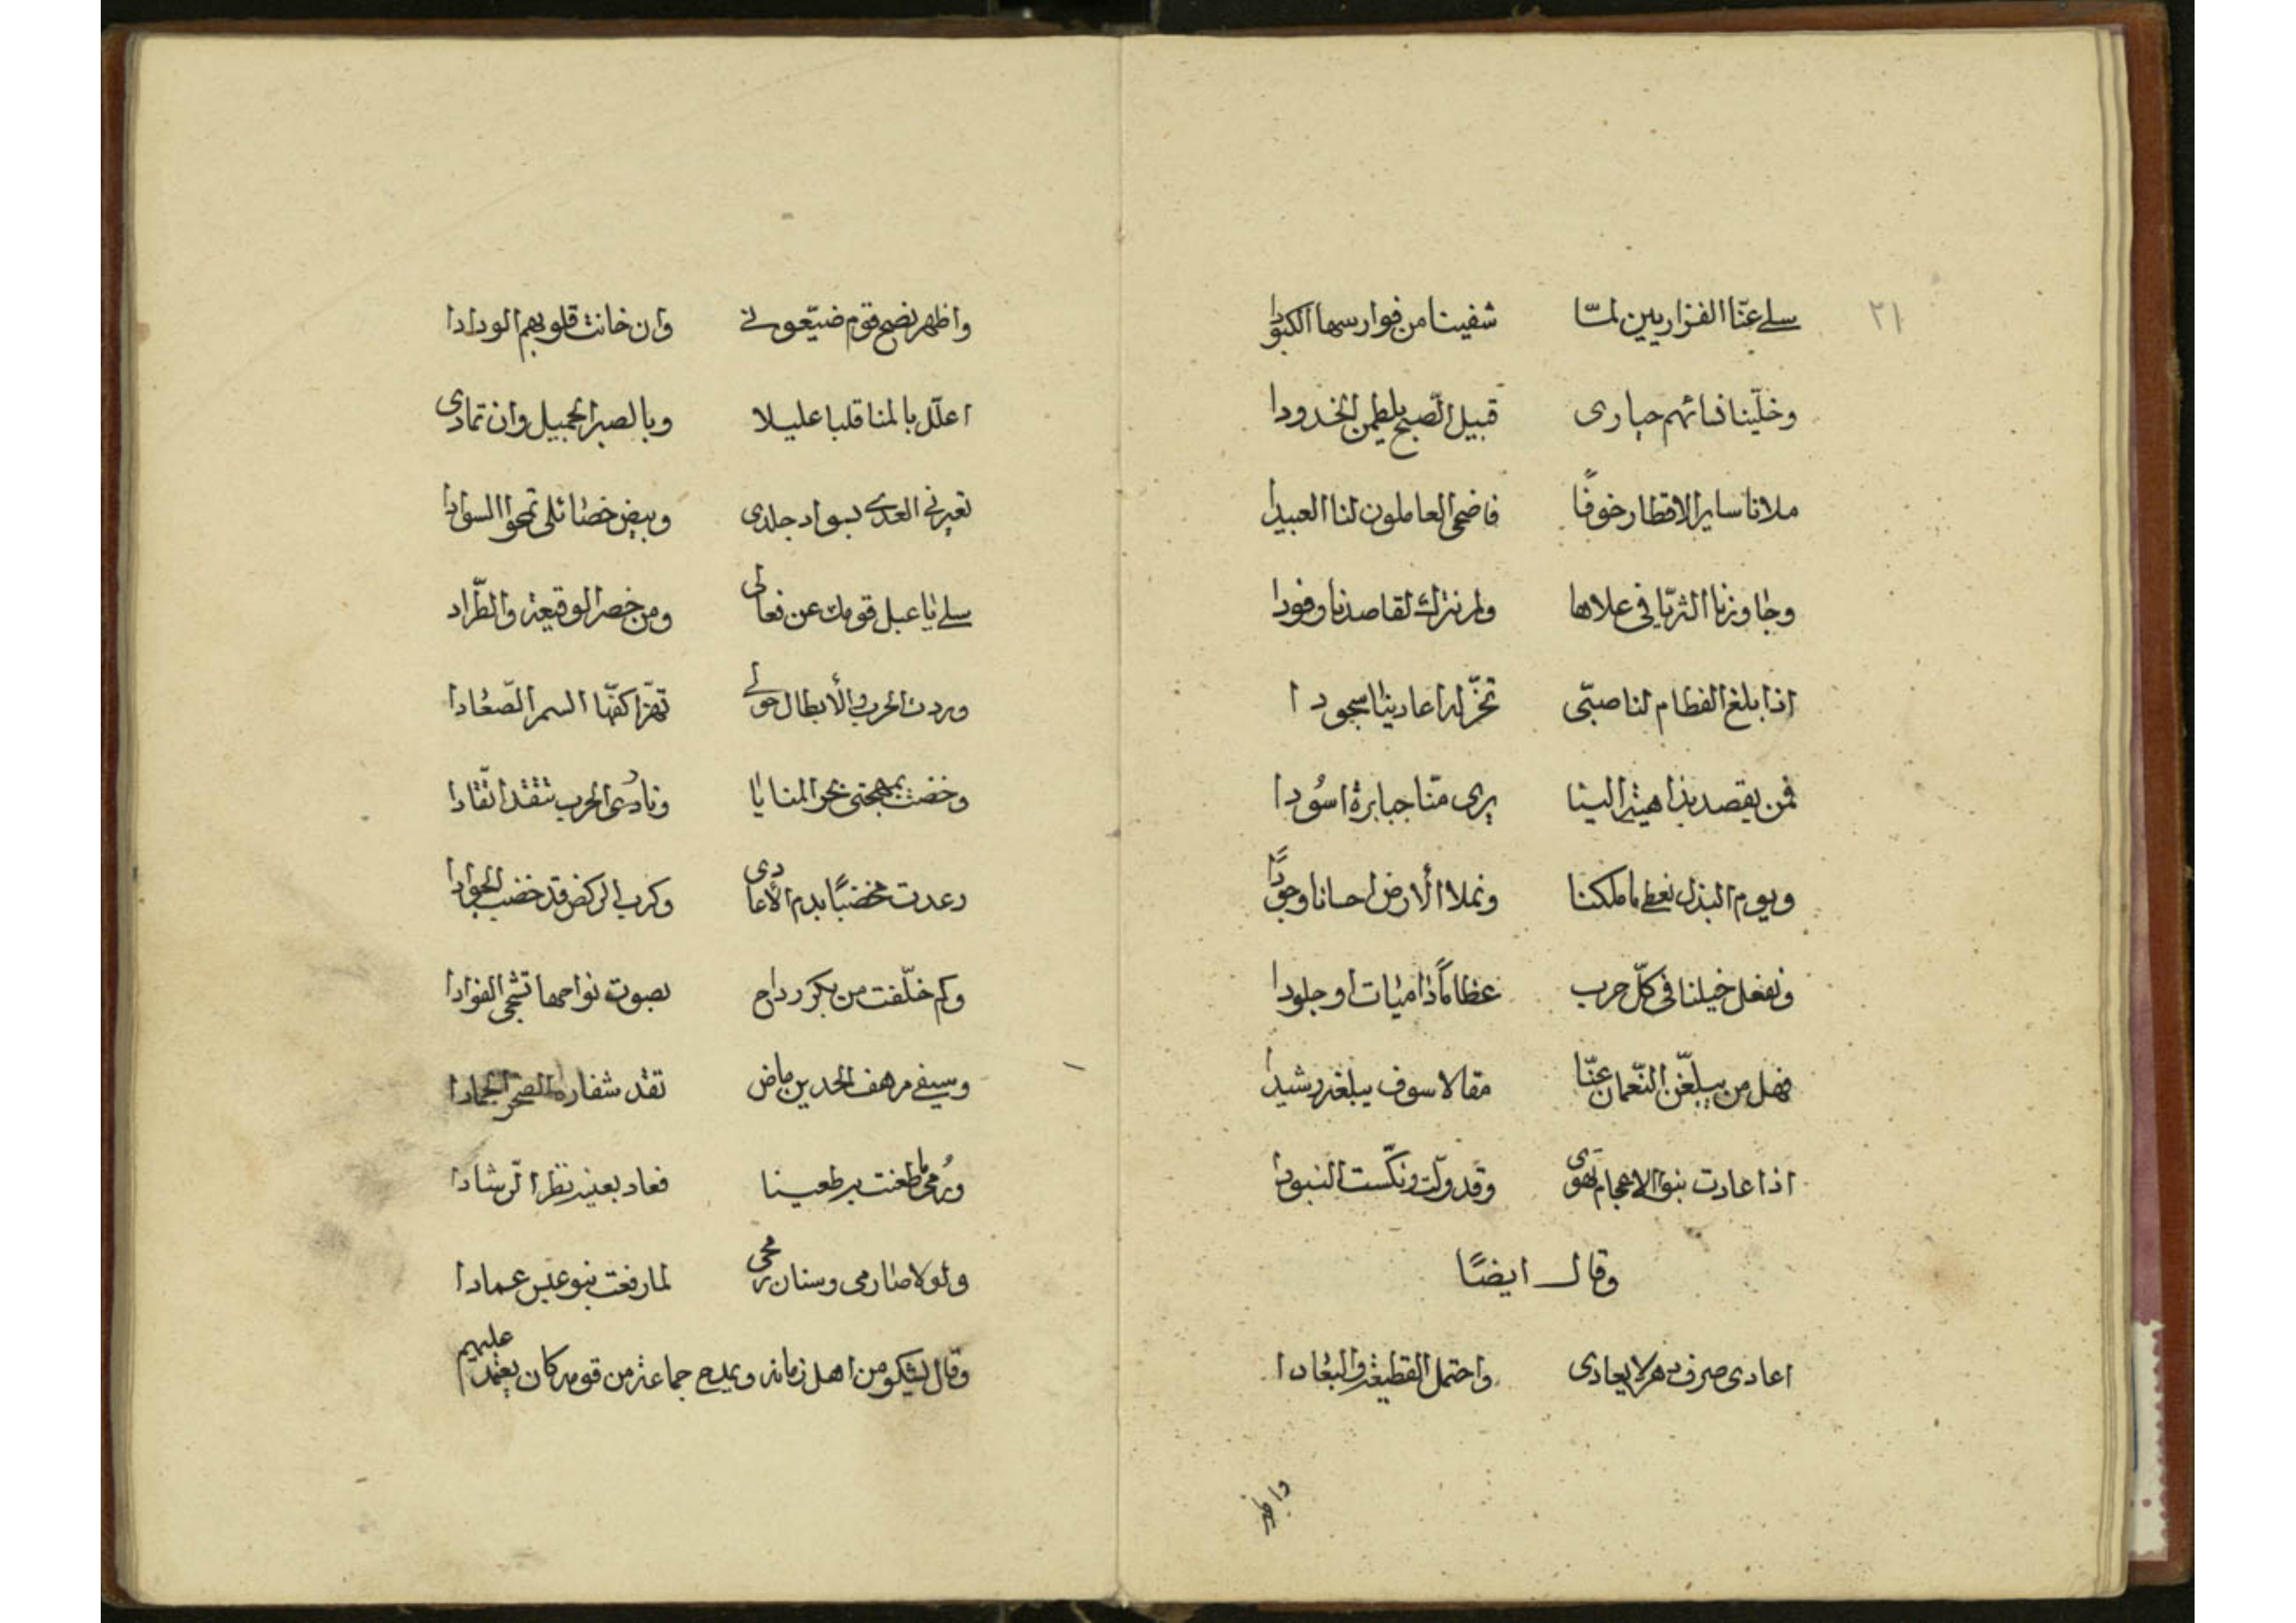 ٢١
سلے عنّا الفزاريين لمّا شفينا من فوارسها الكبودا
وخلّينا نسائهم حيارى قبيل الصّبح يلطمن الخدودا
ملانا ساير الاقطار خوفًا فاضحى العاملون لنا العبيدا
وجاوزنا الثريّا فى علاها ولم نترك لقاصدنا وفودا
اذا بلغ الفطام لنا صبّى تخرّ له اعادينا سجودا
فمن يقصد بذاهية الينا يرى منّا جبابرة اسُودا
ويوم البذل نعطے ما ملكنا ونملا الأرض احسانا وجودًا
ونفعل خيلنا فى كلّ حرب عظامًا ذاميات او جلودا
فهل من يبلّغن النّعمان عنّا مقالا سوف يبلغه رشيدا
اذا عادت بنوا الاعجام تهوى وقد ولّت ونكّست البنودا
وقال ايضًا
اعادى صرف دهر لا يعادى واحتمل القطيعة والبعُادا
واظهر
واظهر نصح قوم ضيّعونے وان خانت قلوبهم الودادا
اعلّل بالمنا قلبا عليلا وبالصبر الجميل وان تمادى
تعيرنى العدے بسواد جلدى وبيض خصائلى تمحوا السوادا
سلے يا عبل قومك عن فعالى ومن حضر الوقيعة والطّراد
وردت الحرب والأبطال حولے تهزّ اكفّها السمر الصّعُادا
وخضت بمهجتى بحر المنايا ونارُ الحرب تتقد اتّقادا
وعدت مخضبًا بدم الأعادى وكرب الركض قد خضب الجوادا
وكم خلّفت من بكر رداح بصوت نواحها تشجى الفوادا
وسيفے مرهف الحدين ماض تقد شفاره الصخر الجمادا
ورُمحى ما طعنت به طعينا فعاد بعينه نظر الرّشادا
ولولا صارمى وسنان رمحى لما رفعت بنو عبس عمادا
وقال يشكو من اهل زمانه ويمدح جماعة من قومه كان يعتمد عليهم